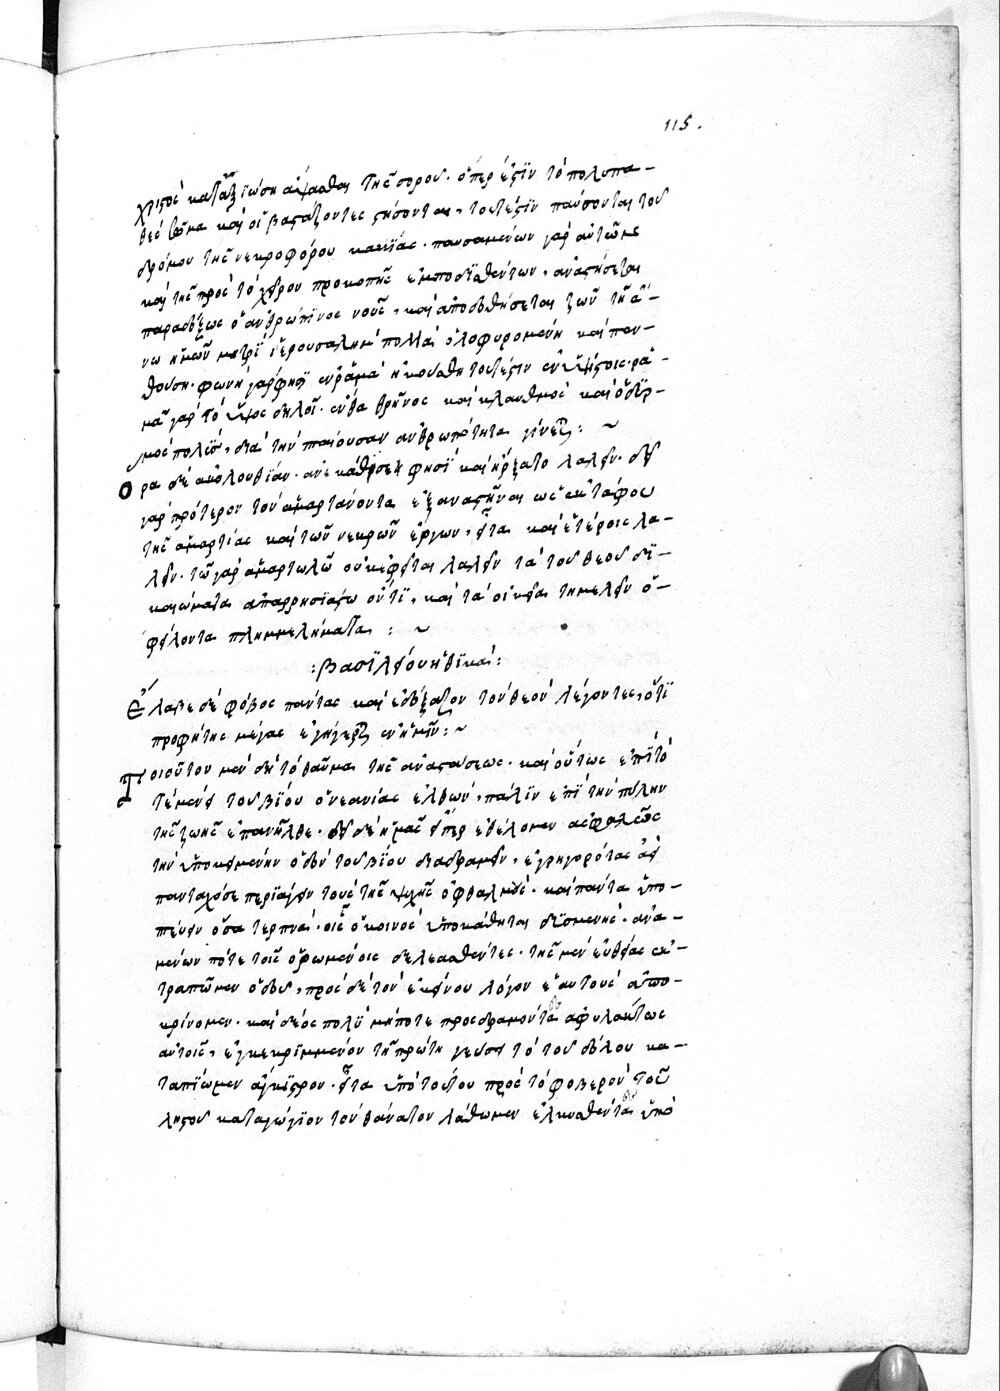 115.
χριστὸς καταξιώση ἅψασθαι τῆς σοροῦ. ὅπερ ἐστὶν τὸ πολυπα-
θὲς σῶμα καὶ οἱ βαστάζοντες στήσονται, τουτέστιν παύσονται τοῦ
δρόμου τῆς νεκροφόρου κακίας. παυσαμένων γὰρ αὐτῶν
καὶ τῆς πρὸς τὸ χεῖρον προκοπῆς ἐμποδισθέντων, ἀναστήσεται
παραδόξως ὁ ἀνθρώπινος νοῦς, καὶ ἀποδοθήσεται ζῶν τῇ ἄ-
νω ἡμῶν μητρὶ ἱερουσαλὴμ πολλὰ ὀλοφυρομένῃ καὶ πεν-
θούσῃ. φωνὴ γάρ φησι ἐν ῥαμᾶ ἠκούσθη τουτέστιν ἐν ὑψίστοις. ῥα-
μᾶ γὰρ τὸ ὕψος δηλοῖ. ἔνθα θρῆνος καὶ κλαυθμὸς καὶ ὀδυρ-
μὸς πολὺς, διὰ τὴν πταίουσαν ἀνθρωπότητα γίνεται: ~
ὅρα δὲ ἀκολουθίαν. ἀνεκάθισε φησὶ καὶ ἤρξατο λαλεῖν. δεῖ
γὰρ πρότερον τὸν ἁμαρτάνοντα ἐξαναστῆναι ὡς ἐκ τάφου
τῆς ἁμαρτίας καὶ τῶν νεκρῶν ἔργων, εἶτα καὶ ἑτέροις λα-
λεῖν. τῷ γὰρ ἁμαρτωλῷ οὐκ ἐφεῖται λαλεῖν τὰ τοῦ θεοῦ δι-
καιώματα ἀπαρρησιάστω ὄντι, καὶ τὰ οἰκεῖα τημελεῖν ὀ-
φείλοντα πλημμελήματα: ~
:βασιλείου ηθικα:
Ἔλαβε δὲ φόβος πάντας καὶ ἐδόξαζον τὸν θεὸν λέγοντες, ὅτι
προφήτης μέγας ἐγήγερται ἐν ἡμῖν: ~
Τοιοῦτον μὲν δὴ τὸ θαῦμα τῆς ἀναστάσεως. καὶ οὕτως ἐπὶ τὸ
τέμενος τοῦ βίου ὁ νεανίας ἐλθὼν, πάλιν ἐπὶ τὴν πύλην
τῆς ζωῆς ἐπανῆλθε. δεῖ δὲ ἡμᾶς εἴπερ ἐθέλομεν ἀσφαλῶς
τὴν ὑποκειμένην ὁδὸν τοῦ βίου διαδραμεῖν, ἐγρηγορότας ἀεὶ
πανταχόσε περιάγειν τοὺς τῆς ψυχῆς ὀφθαλμοὺς. καὶ πάντα ὑπο-
πτεύειν ὅσα τερπνά. οἷς ὁ κοινὸς ὑποκάθηται δυσμενὴς. ἀνα-
μένων πότε τοῖς ὁρωμένοις δελεασθέντες. τῆς μὲν εὐθείας ἐκ-
τραπῶμεν ὁδοῦ, πρὸς δὲ τὸν ἐκείνου λόχον ἑαυτοὺς ἀπο-
κρίνομεν. καὶ δέος πολὺ μήποτε προσδραμόντες ἀφυλάκτως
αὐτοῖς, ἐγκεκριμμένον τῇ πρώτῃ γεύσει τὸ τοῦ δόλου κα-
ταπίωμεν ἄγκιστρον. εἶτα ὑπὸ τούτου πρὸς τὸ φοβερὸν τοῦ
λῃστοῦ καταγώγιον τὸν θάνατον λάθωμεν ἑλκυσθέντες ὑπὸ